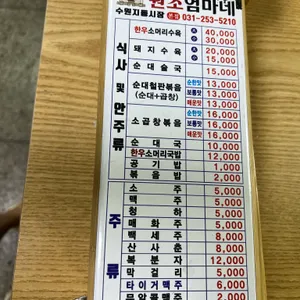 원조엄마네
수원지동시장 본점 031-253-5210
식사 및 안주류
한우소머리수육 大 40,000
小 30,000
돼지수육 大 20,000
小 15,000
순대술국 15,000
순대철판볶음 (순대+곱창) 순한맛 13,000
보통맛 13,000
매운맛 13,000
소곱창볶음 순한맛 16,000
보통맛 16,000
매운맛 16,000
순대국 10,000
한우소머리국밥 12,000
공기밥 1,000
볶음밥 2,000
주류
소주 5,000
맥주 5,000
청하 5,000
매화주 5,000
백세주 8,000
산사춘 8,000
복분자 12,000
막걸리 5,000
타이거맥주 6,000
무알콜맥주 2,000